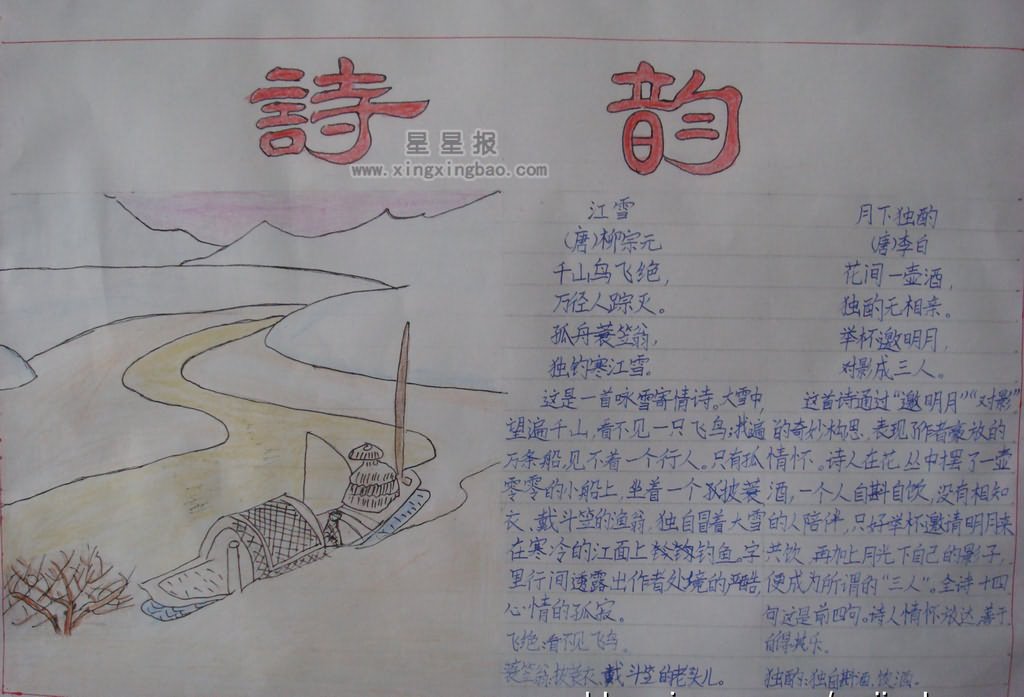 詩韵
星星报
www.xingxingbao.com
江雪
(唐)柳宗元
千山鸟飞绝,
万径人踪灭。
孤舟蓑笠翁,
独钓寒江雪。
这是一首咏雪寄情诗。大雪中,
望遍千山,看不见一只飞鸟;找遍
万条船,见不着一个行人。只有孤
零零的小船上,坐着一个孤披蓑
衣、戴斗笠的渔翁,独自冒着大雪
在寒冷的江面上钓鱼。字
里行间透露出作者处境的严酷,
心情的孤寂。
飞绝:看不见飞鸟。
蓑笠翁:披蓑衣、戴斗笠的老头儿。
月下独酌
(唐)李白
花间一壶酒,
独酌无相亲。
举杯邀明月,
对影成三人。
这首诗通过“邀明月”“对影”
的奇妙构思,表现了作者豪放的
情怀。诗人在花丛中摆了一壶
酒,一个人自斟自饮,没有相知
的人陪伴,只好举杯邀请明月来
共饮,再加上月光下自己的影子,
便成为所谓的“三人”。全诗十四
句这是前四句。诗人情怀放达,善于
自得其乐。
独酌:独自斟酒、饮酒。